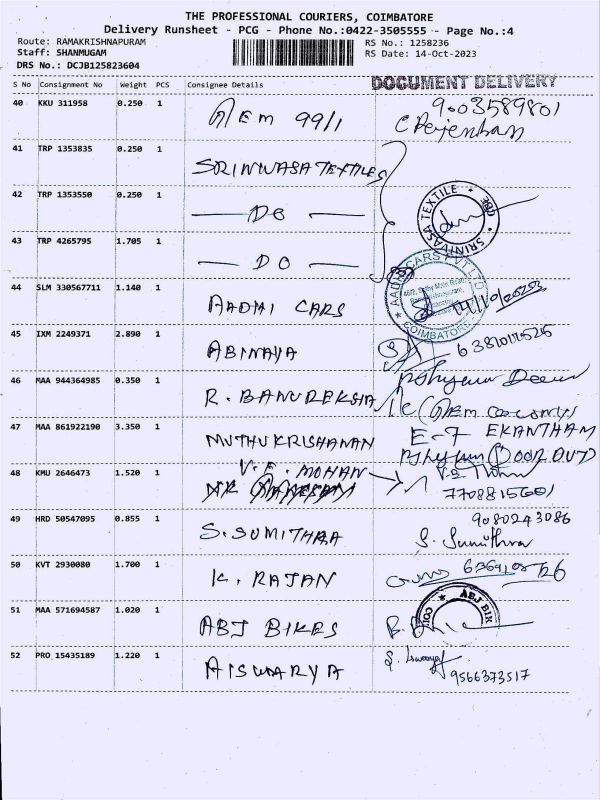 THE PROFESSIONAL COURIERS, COIMBATORE
Delivery Runsheet - PCG - Phone No.:0422-3505555 - Page No.:4
Route: RAMAKRISHNAPURAM
Staff: SHANMUGAM
DRS No.: DCJB125823604
RS No.: 1258236
RS Date: 14-Oct-2023
DOCUMENT DELIVERY
S No Consignment No Weight PCS Consignee Details
40 KKU 311958 0.250 1 GEM 99/1 9003589801
41 TRP 1353835 0.250 1 SRINIVASA TEXTILES
42 TRP 1353550 0.250 1 — DO — SRINIVASA TEXTILE
43 TRP 4265795 1.705 1 — DO —
44 SLM 330567711 1.140 1 AADHI CARS AADHI CARS PVT LTD COIMBATORE
45 IXM 2249371 2.890 1 ABINAYA
46 MAA 944364985 0.350 1 R. BANUREKHA
47 MAA 861922190 3.350 1 MUTHUKRISHANAN E-7 EKANTHAM
DOOR OUT
48 KMU 2646473 1.520 1 V.E. MOHAN
49 HRD 50547095 0.855 1 S. SUMITHRA 9080243086
S. Sumithra
50 KVT 2930080 1.700 1 K. RAJAN
51 MAA 571694587 1.020 1 ABJ BIKES ABJ BIK
52 PRO 15435189 1.220 1 AISWARYA 9566373517